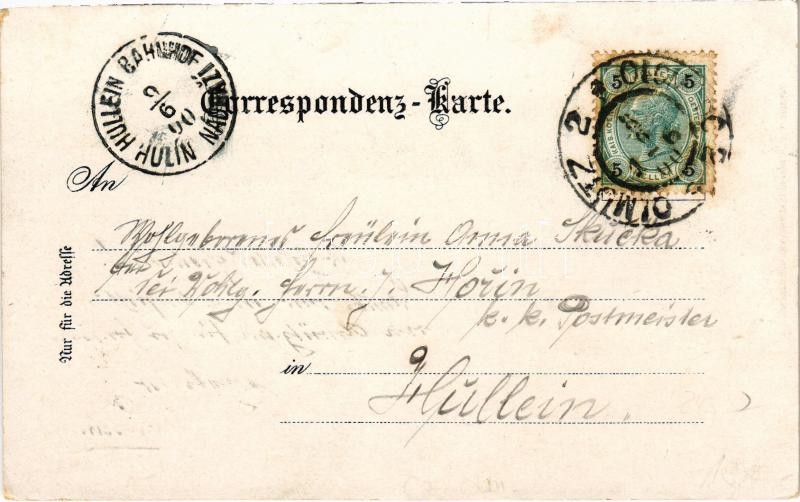 HULLEIN BAHNHOF
HULIN NÁDRAŽÍ
2/6
00
Correspondenz-Karte.
5 5
5 5
2 OLMÜTZ 2
An
Wohlgeborenes Fräulein Anna Skučka
bei Wohlg. Herrn J. Hořin
k. k. Postmeister
in
Hullein.
Nur für die Adresse